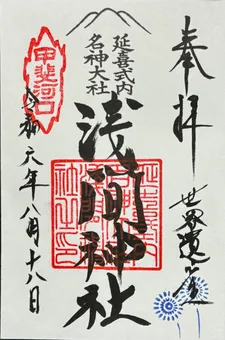 奉拝
世界遺産
延喜式内
名神大社
浅間神社
甲斐河口
令和六年八月十八日